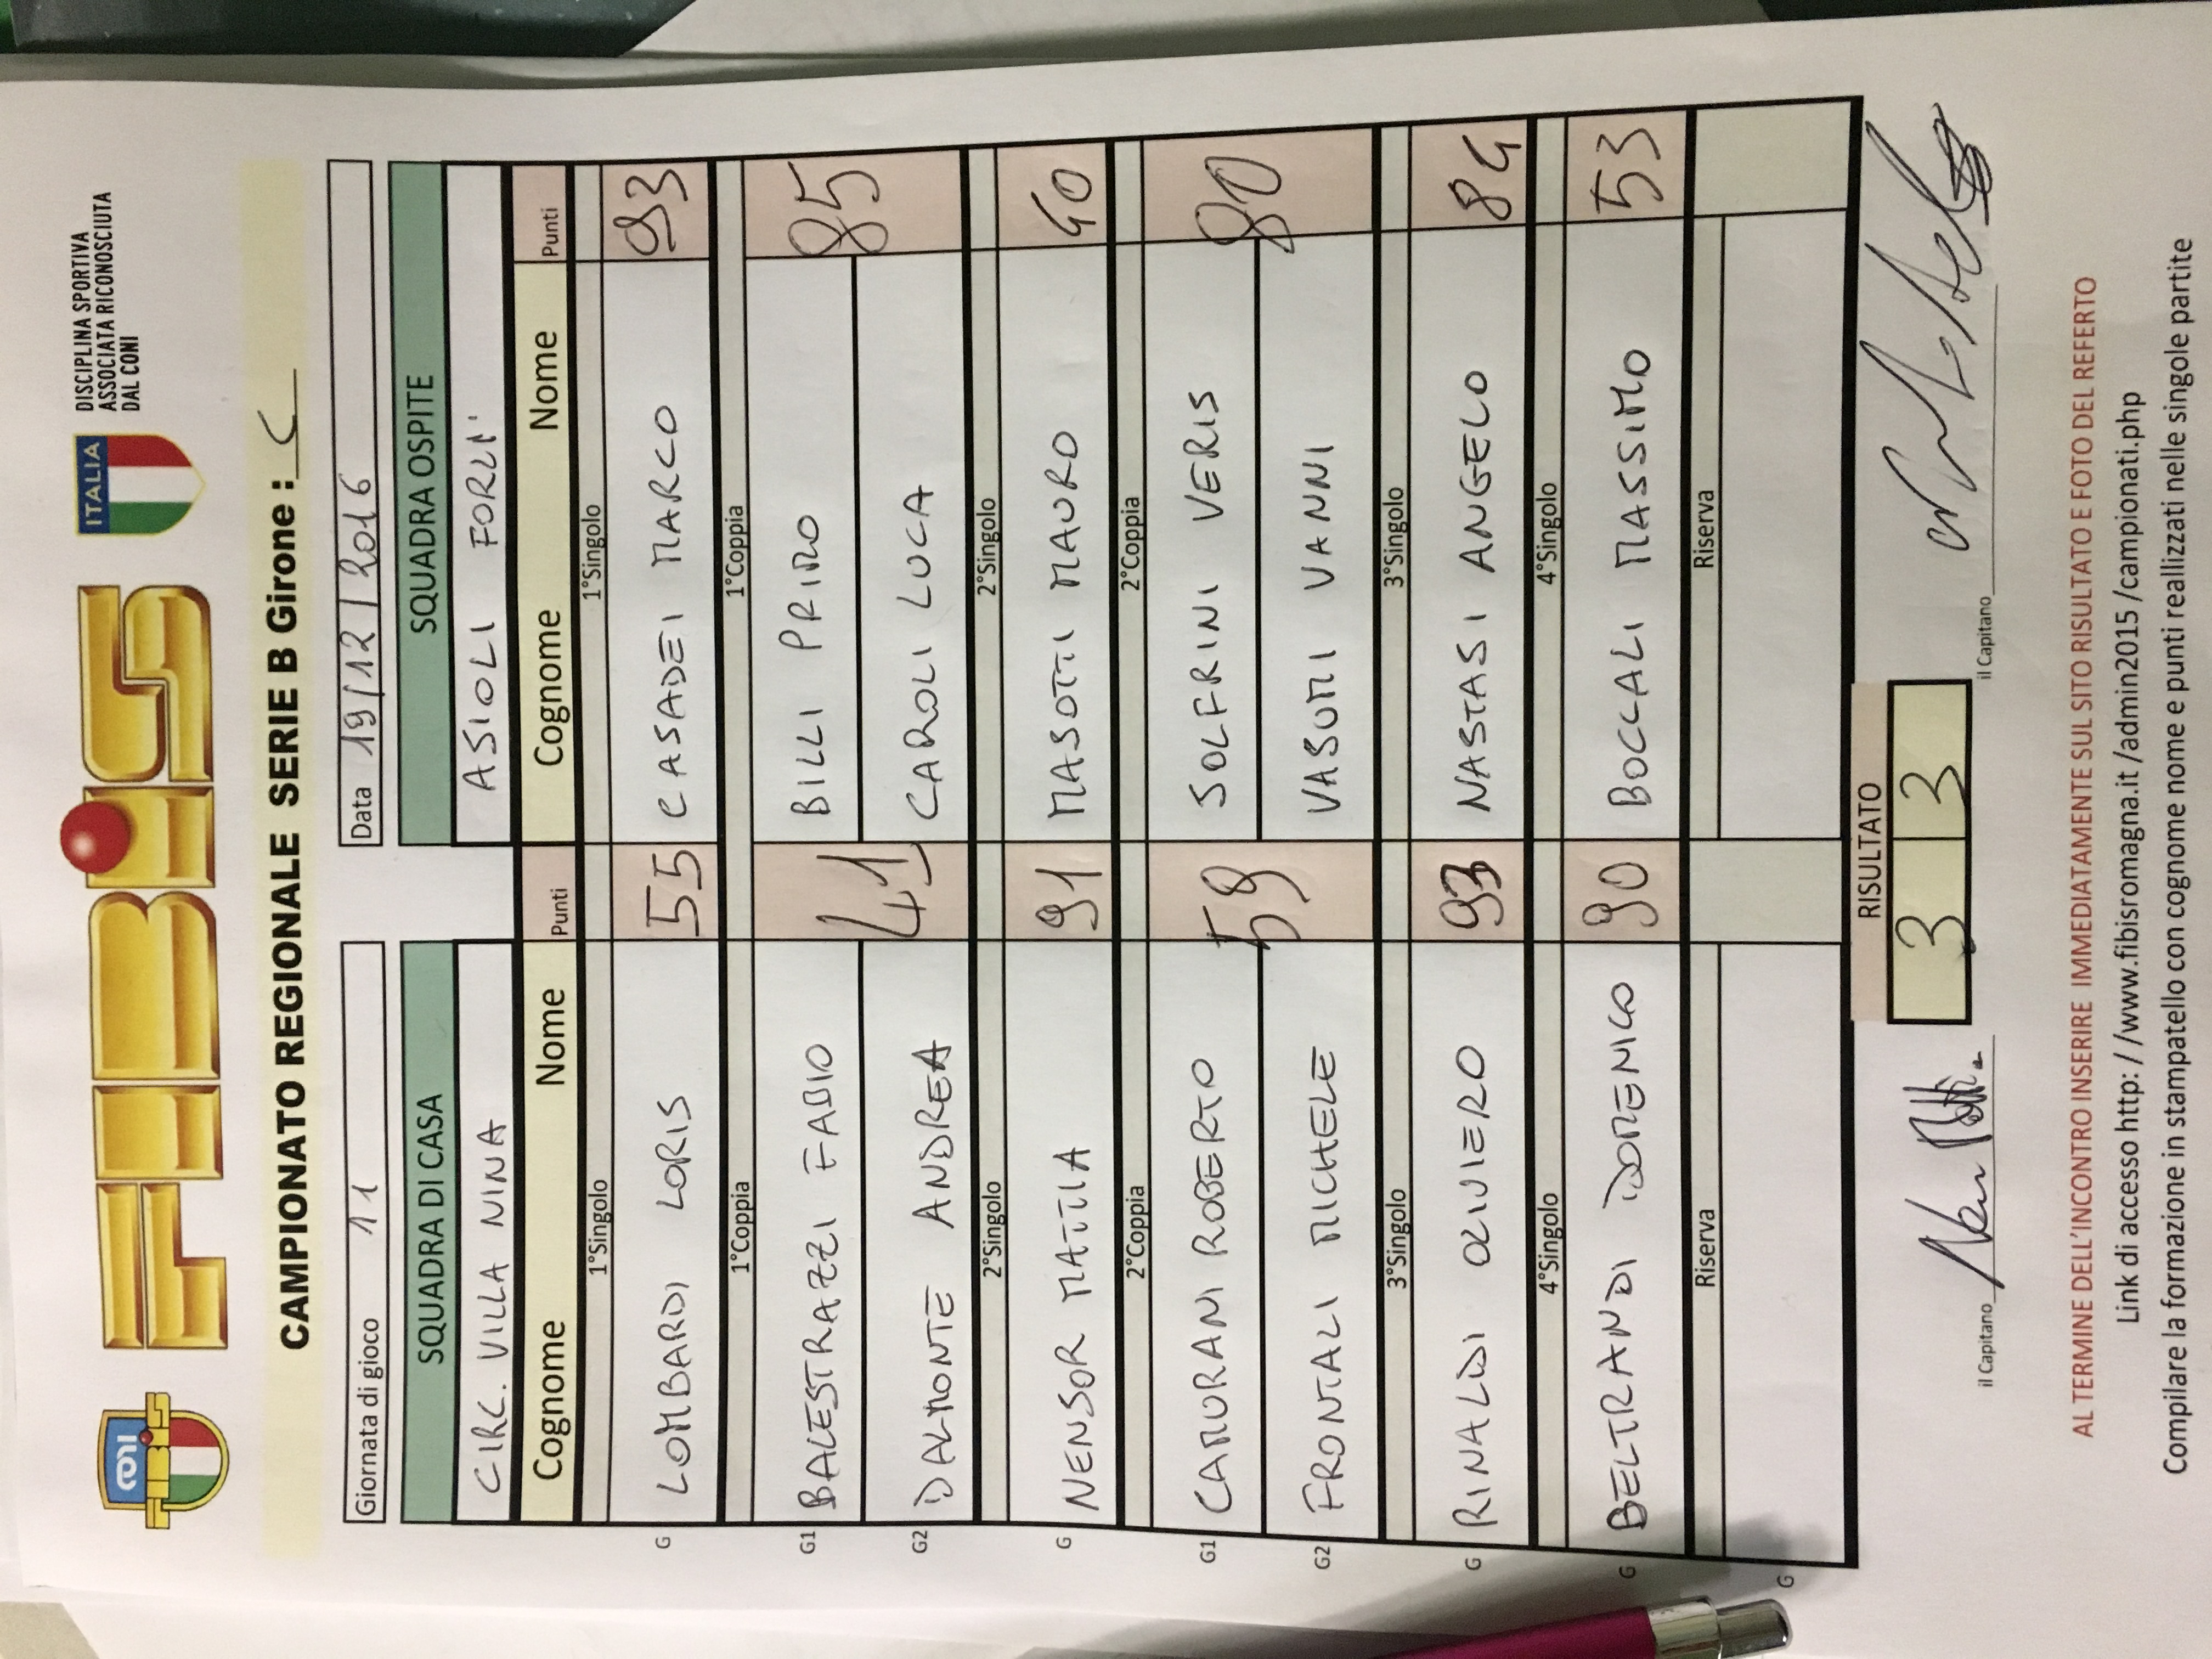 FIBiS
ITALIA
DISCIPLINA SPORTIVA
ASSOCIATA RICONOSCIUTA
DAL CONI
CAMPIONATO REGIONALE SERIE B Girone : C
Giornata di gioco 11 Data 19/12/2016
SQUADRA DI CASA SQUADRA OSPITE
CIRC. VILLA NINA ASIOLI FORLI'
Cognome Nome Punti Cognome Nome Punti
1°Singolo 1°Singolo
G LOMBARDI LORIS 55 CASADEI MARCO 93
1°Coppia 1°Coppia
G1 BALESTRAZZI FABIO 41 BILLI PRIMO 85
G2 DALMONTE ANDREA CAROLI LUCA
2°Singolo 2°Singolo
G NENSOR MATTIA 91 MASOTTI MAURO 40
2°Coppia 2°Coppia
G1 CAMORANI ROBERTO 59 SOLFRINI VERIS 80
G2 FRONTALI MICHELE VASUMI VANNI
3°Singolo 3°Singolo
G RINALDI OLIVIERO 93 NASTASI ANGELO 84
4°Singolo 4°Singolo
G BELTRANDI DOMENICO 90 BOCCALI MASSIMO 53
Riserva Riserva
G
RISULTATO
3 3
il Capitano il Capitano
AL TERMINE DELL'INCONTRO INSERIRE IMMEDIATAMENTE SUL SITO RISULTATO E FOTO DEL REFERTO
Link di accesso http: / /www.fibisromagna.it /admin2015 /campionati.php
Compilare la formazione in stampatello con cognome nome e punti reallizzati nelle singole partite